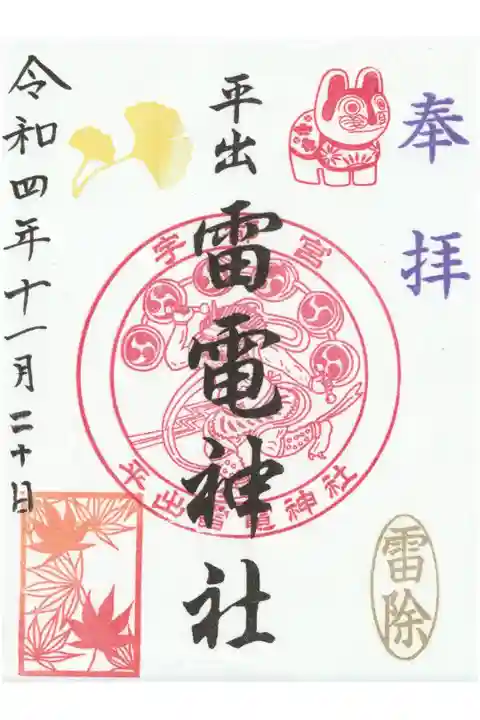 奉拝
平出
雷電神社
宇 宮
平出雷電神社
雷除
令和四年十一月二十日